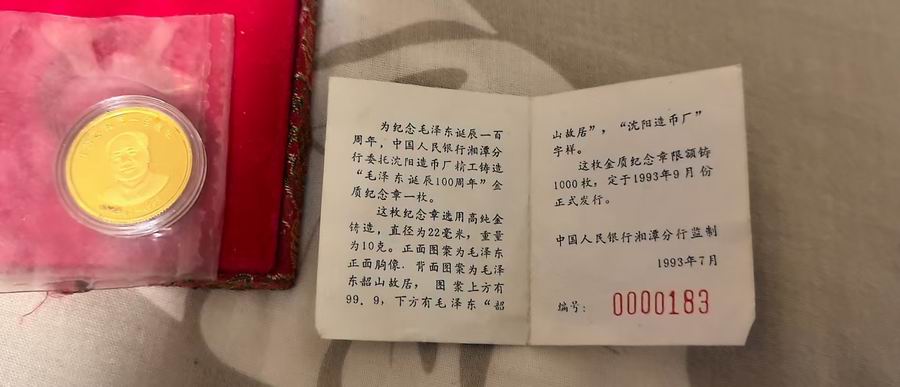 为纪念毛泽东诞辰一百
周年，中国人民银行湘潭分
行委托沈阳造币厂精工铸造
“毛泽东诞辰100周年”金
质纪念章一枚。
这枚纪念章选用高纯金
铸造，直径为22毫米，重量
为10克。正面图案为毛泽东
正面胸像．背面图案为毛泽
东韶山故居，图案上方有
99．9，下方有毛泽东“韶
山故居”，“沈阳造币厂”
字样。
这枚金质纪念章限额铸
1000枚，定于1993年9月份
正式发行。
中国人民银行湘潭分行监制
1993年7月
编号：0000183